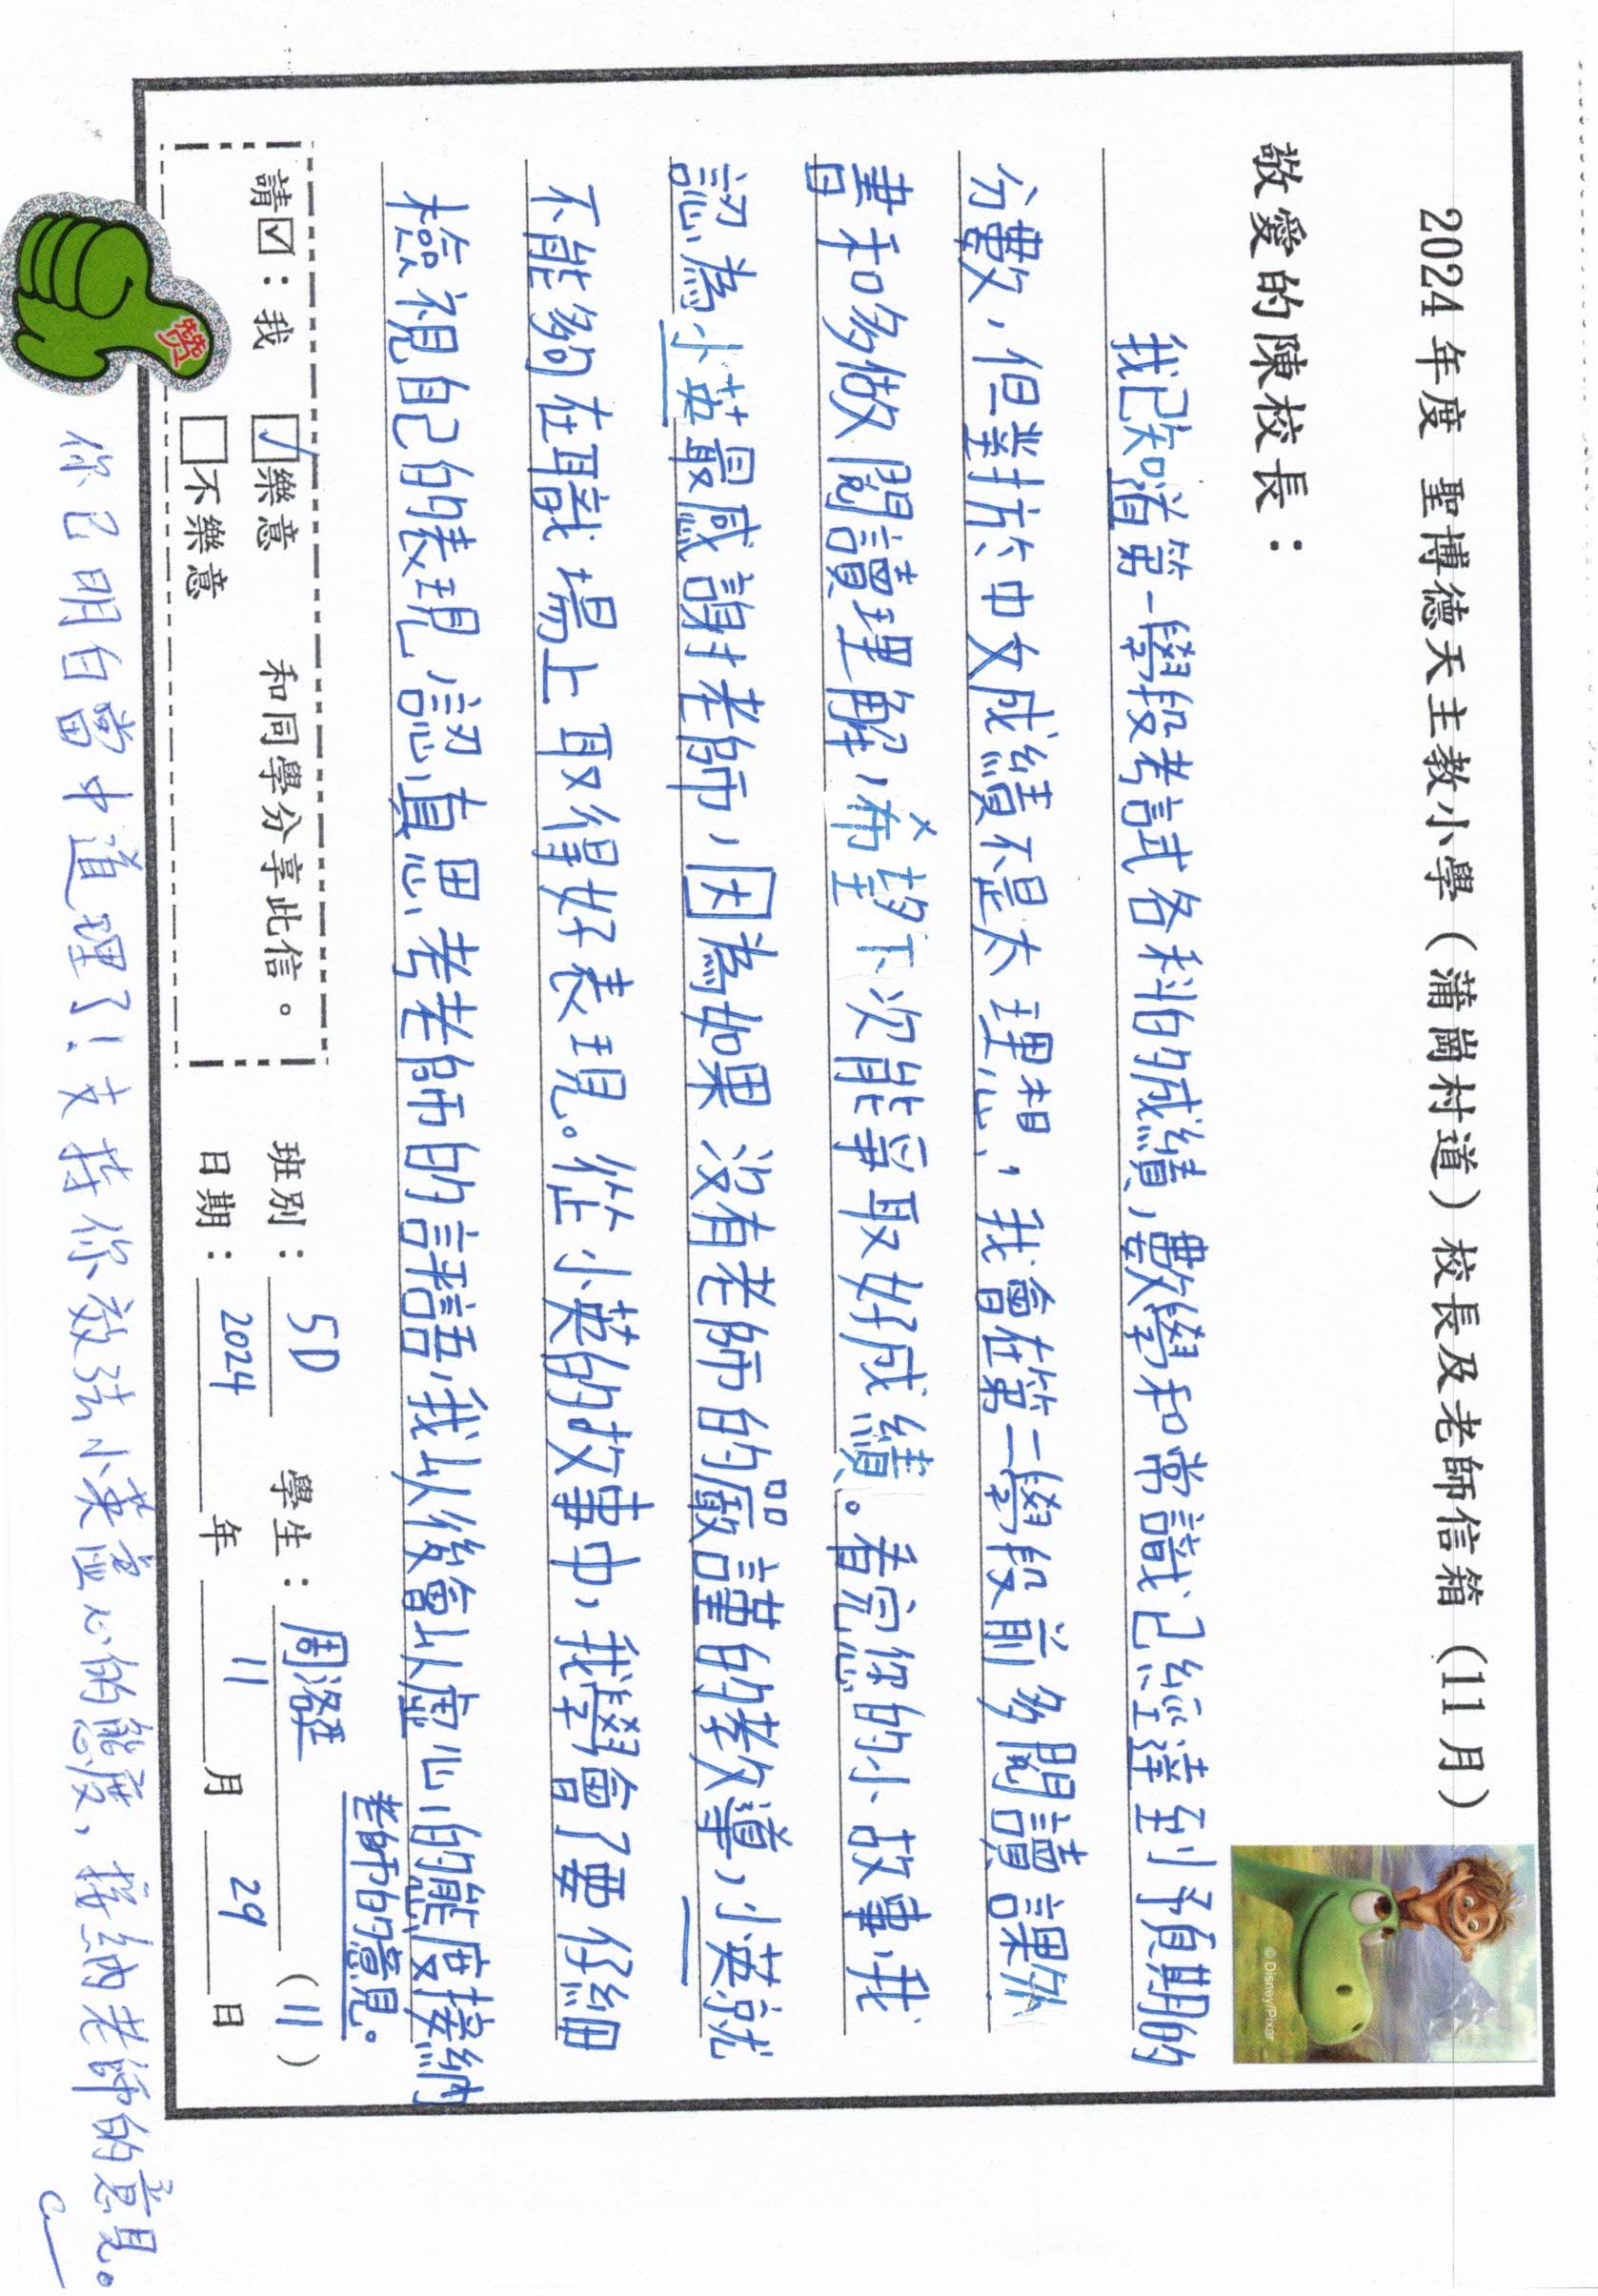 2024年度 聖博德天主教小學（蒲崗村道）校長及老師信箱（11月）
敬愛的陳校長：
© Disney/Pixar
我已知道第一學段考試各科的成績，數學和常識已經達到予頁期的
分數，但對於中文成績不是太理想，我會在第二學段前多閱讀課外
書和多做閱讀理解，希望下次能爭取好成績。看完您的小故事，我
認為小英最感謝老師，因為如果沒有老師的嚴謹的教導，小英就
不能夠在職場上取得好表現。從小英的故事中，我學會了要仔細
檢視自己的表現，認真思考老師的評語，我以後會以虛心的態度接納
老師的意見。
請☑：我 ☑樂意 和同學分享此信。
□不樂意
班別：5D 學生：周 (11)
日期：2024年11月29日
赞
你已明白當中道理了！支持你效法小英虛心的態度，接納老師的意見。